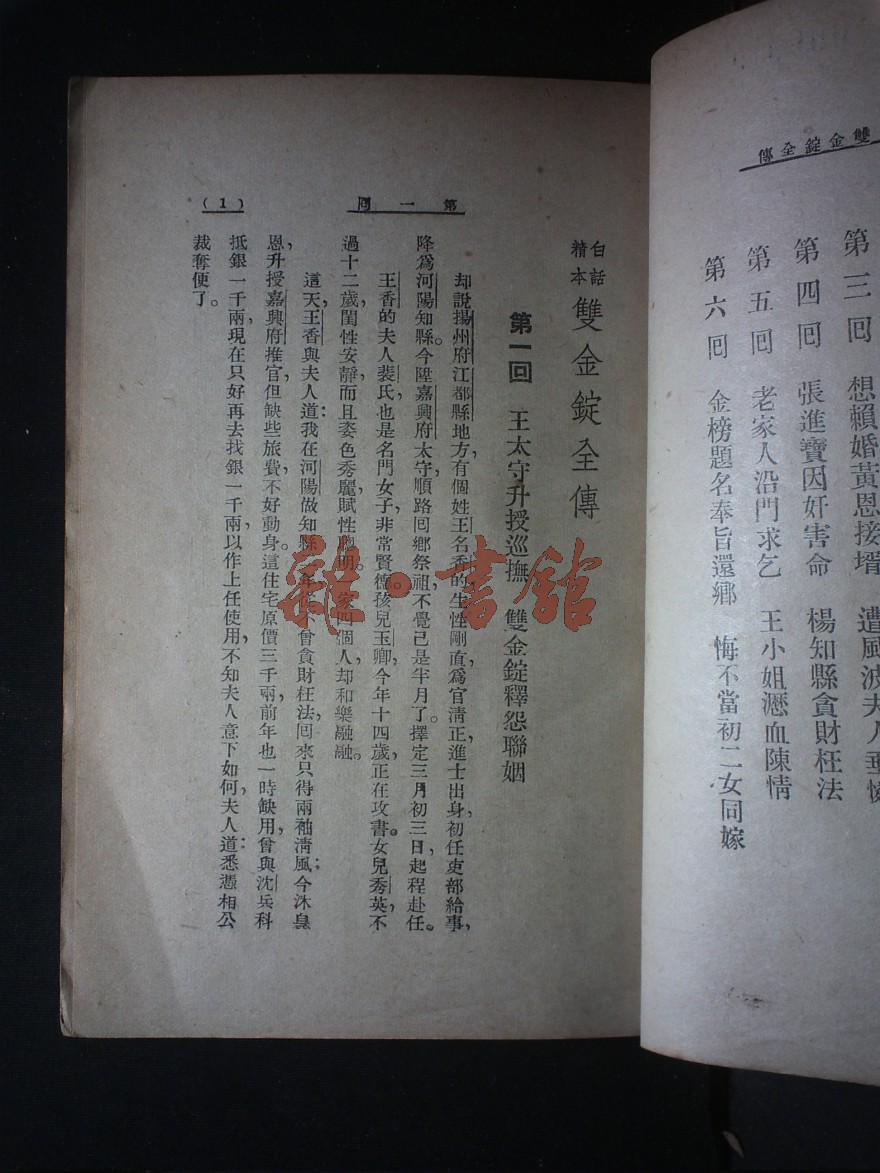 雙金錠全傳
第三回 想賴婚黃恩接壻 遭風波夫人垂
第四回 張進寶因奸害命 楊知縣貪財枉法
第五回 老家人沿門求乞 王小姐瀝血陳情
第六回 金榜題名奉旨還鄉 悔不當初二女同嫁
第一回
(1)
白話精本 雙金錠全傳
第一回 王太守升授巡撫 雙金錠釋怨聯姻
却說揚州府江都縣地方，有個姓王名香的生性剛直，爲官淸正，進士出身，初任吏部給事，
降爲河陽知縣。今陞嘉興府太守，順路囘鄉祭祖，不覺已是半月了。擇定三月初三日，起程赴任。
王香的夫人裴氏，也是名門女子，非常賢德，孩兒玉卿，今年十四歲，正在攻書。女兒秀英，不
過十二歲，閨性安靜，而且姿色秀麗，賦性聰明。一家四個人，却和樂融融。
這天，王香與夫人道：我在河陽做知縣，年來不曾貪財枉法，囘來只得兩袖淸風；今沐皇
恩，升授嘉興府推官，但缺些旅費，不好動身。這住宅原價三千兩，前年也一時缺用，曾與沈兵科
抵銀一千兩，現在只好再去找銀一千兩，以作上任使用，不知夫人意下如何，夫人道：悉憑相公
裁奪便了。
雜·書館